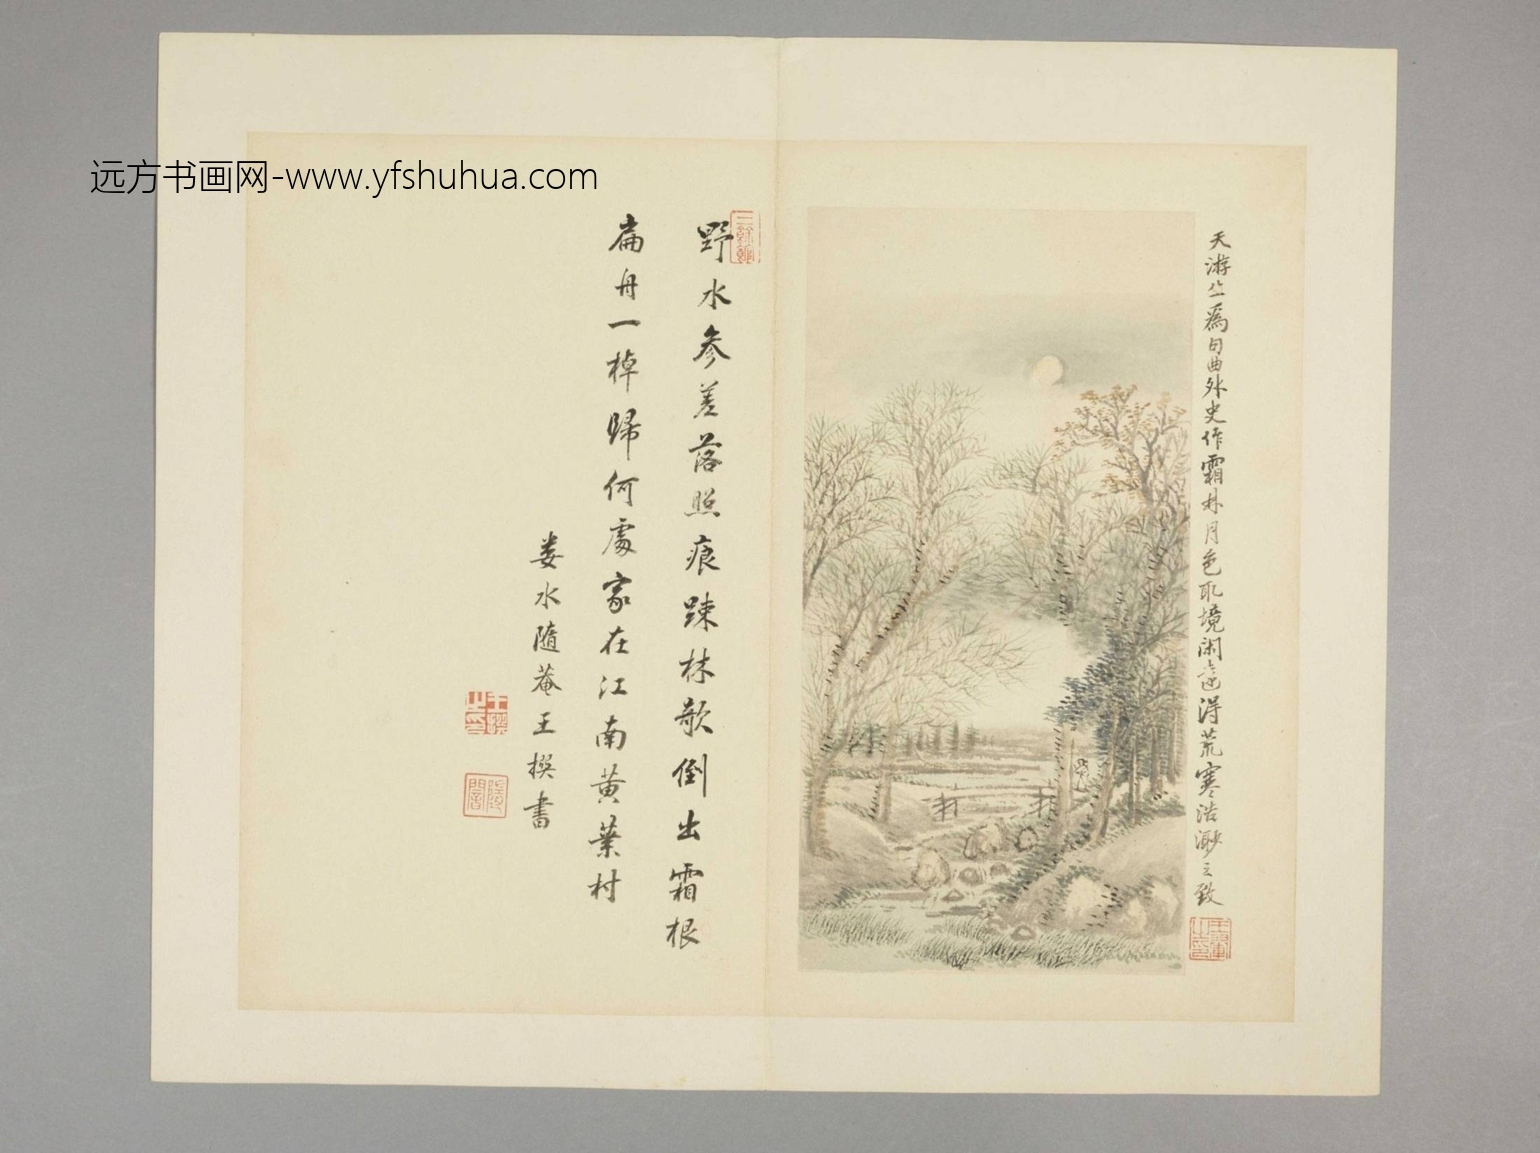 远方书画网-www.yfshuhua.com
天游生爲句曲外史作霜林月色取境閑遠得荒寒浩渺之致
野水參差落照痕踈林欹倒出霜根
扁舟一棹歸何處家在江南黄葉村
婁水隨菴王撰書
王撰之印